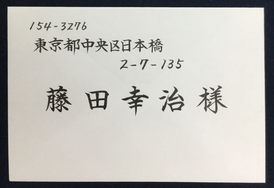 154-3276
東京都中央区日本橋
2-7-135
藤田幸治様